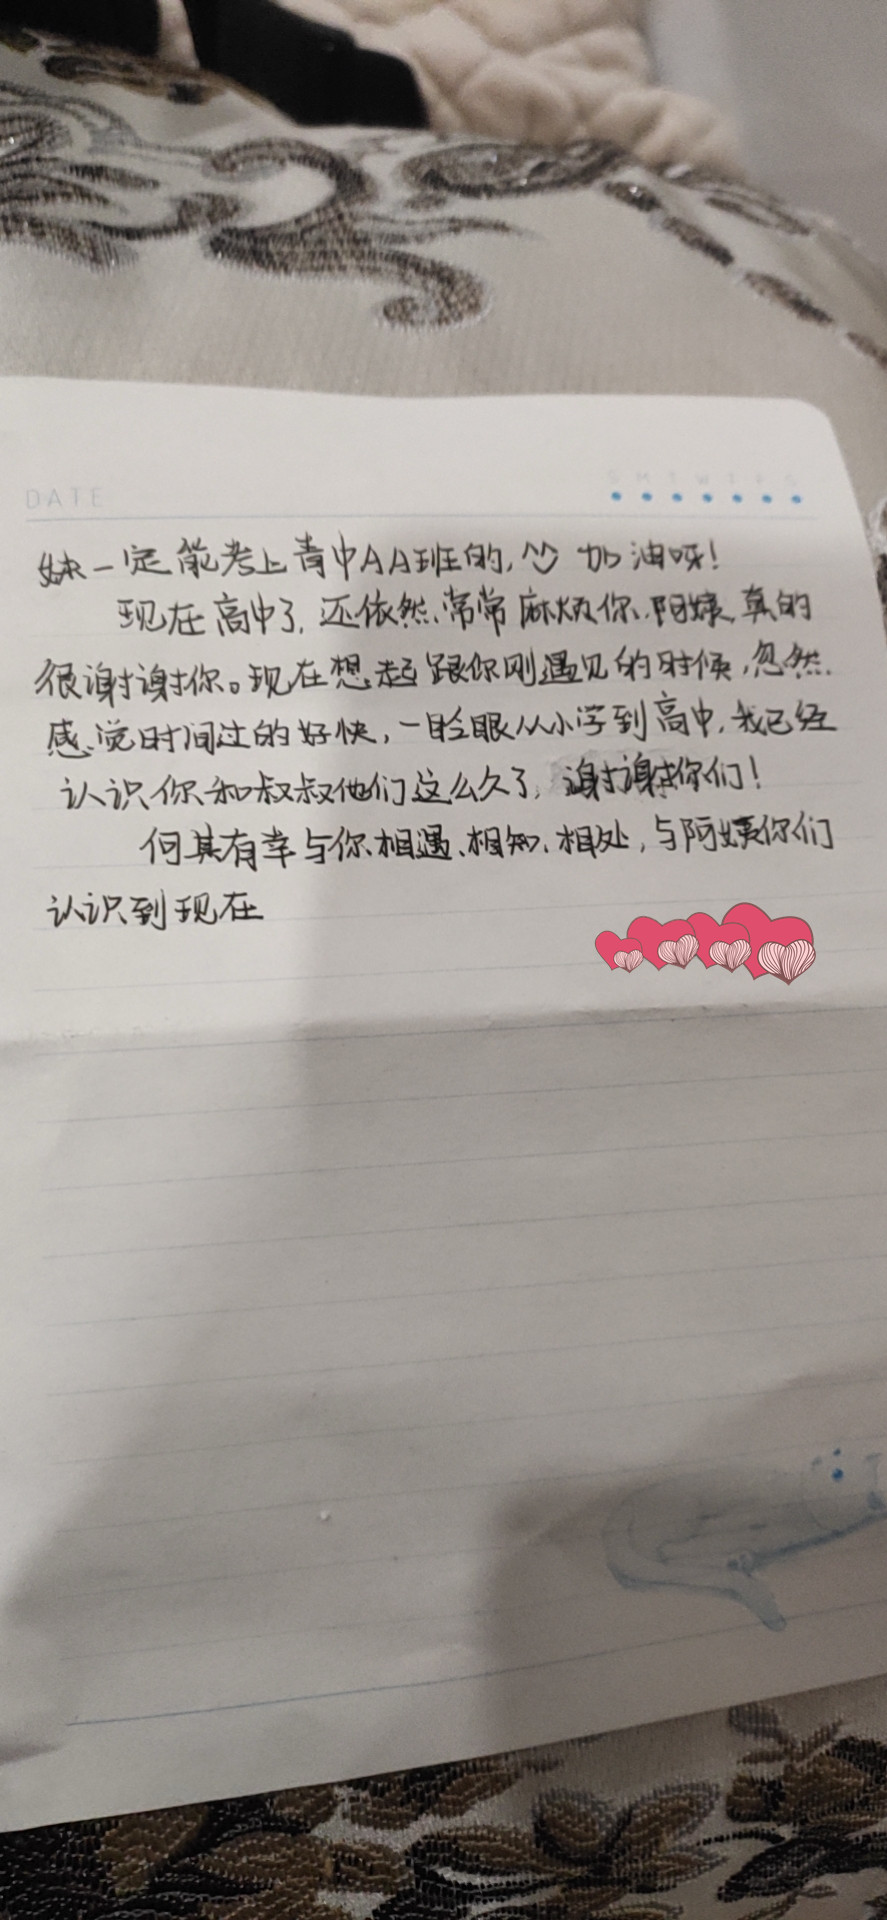 DATE
S M T W T F S
妹一定能考上青中AA班的,^^ 加油呀!
现在高中了,还依然、常常麻烦你,阿姨,真的
很谢谢你。现在想起跟你刚遇见的时候,忽然
感觉时间过的好快,一眨眼从小学到高中,我已经
认识你和叔叔他们这么久了,谢谢你们!
何其有幸与你相遇、相知、相处,与阿姨你们
认识到现在